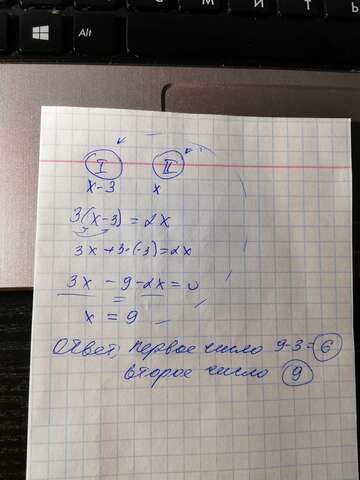 И Т Ь
Alt
I II
x-3 x
3(x-3)=2x
3x+3·(-3)=2x
3x - 9 - 2x = 0
x = 9
Ответ: первое число 9-3=6
второе число 9